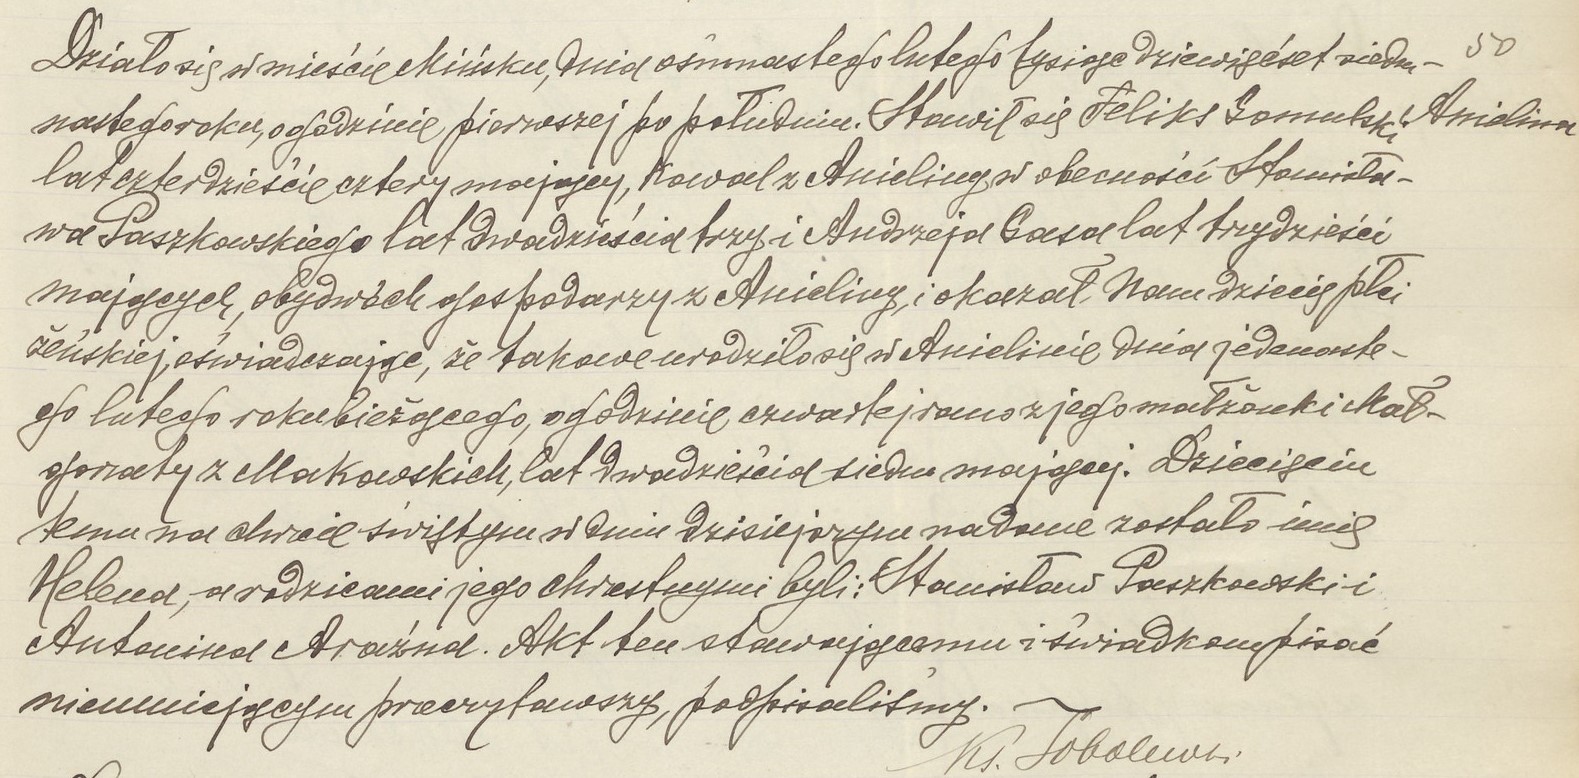 Działo się w mieście Mińsku, dnia ośmnastego lutego tysiąc dziewięćset siedm- 50
nastego roku, o godzinie pierwszej po południu. Stawił się Feliks Gomulski Anielina
lat czterdzieście cztery mający, Kowal z Anieliny w obecności Stanisła-
wa Paszkowskiego lat dwadzieścia trzy i Andrzeja Gasa lat trydzieści
mających, obydwóch gospodarzy z Anieliny, i okazał Nam dziecię płci
żeńskiej, oświadczając, że takowe urodziło się w Anielinie dnia jedenaste-
go lutego roku bieżącego, o godzinie czwartej rano z jego małżonki Mał-
gorzaty z Makowskich, lat dwadzieścia siedm mającej. Dziecięciu
temu na chrzcie świętym w dniu dzisiejszym nadane zostało imię
Helena, a rodzicami jego chrestnymi byli: Stanisław Paszkowski i
Antonina Araźna. Akt ten stawającemu i świadkom pisać
nieumiejącym przeczytawszy, podpisaliśmy.
Ks.